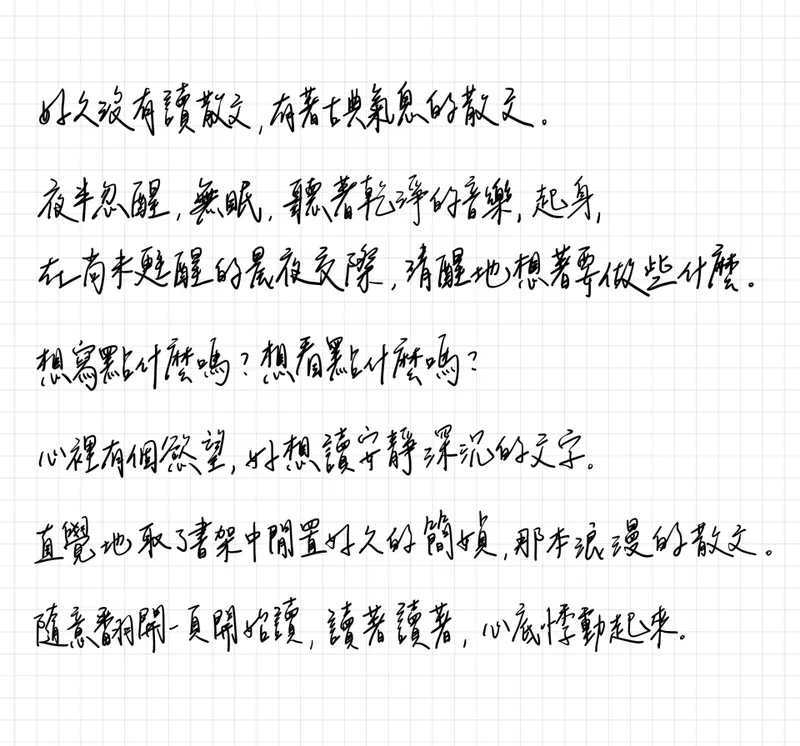 好久沒有讀散文,有著古典氣息的散文。
夜半忽醒,無眠,聽著乾淨的音樂,起身,
在尚未甦醒的晨夜交際,清醒地想著要做些什麼。
想寫點什麼嗎?想看點什麼嗎?
心裡有個慾望,好想讀安靜深沉的文字。
直覺地取了書架中閒置好久的簡媜,那本浪漫的散文。
隨意翻開一頁開始讀,讀著讀著,心底悸動起來。